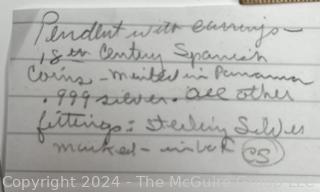 Pendent with earrings -
18th Century Spanish
Coins - minted in Panama
.999 silver. All other
fittings = sterling Silver
marked -
25
Copyright 2024 - The McGuire Group LLC